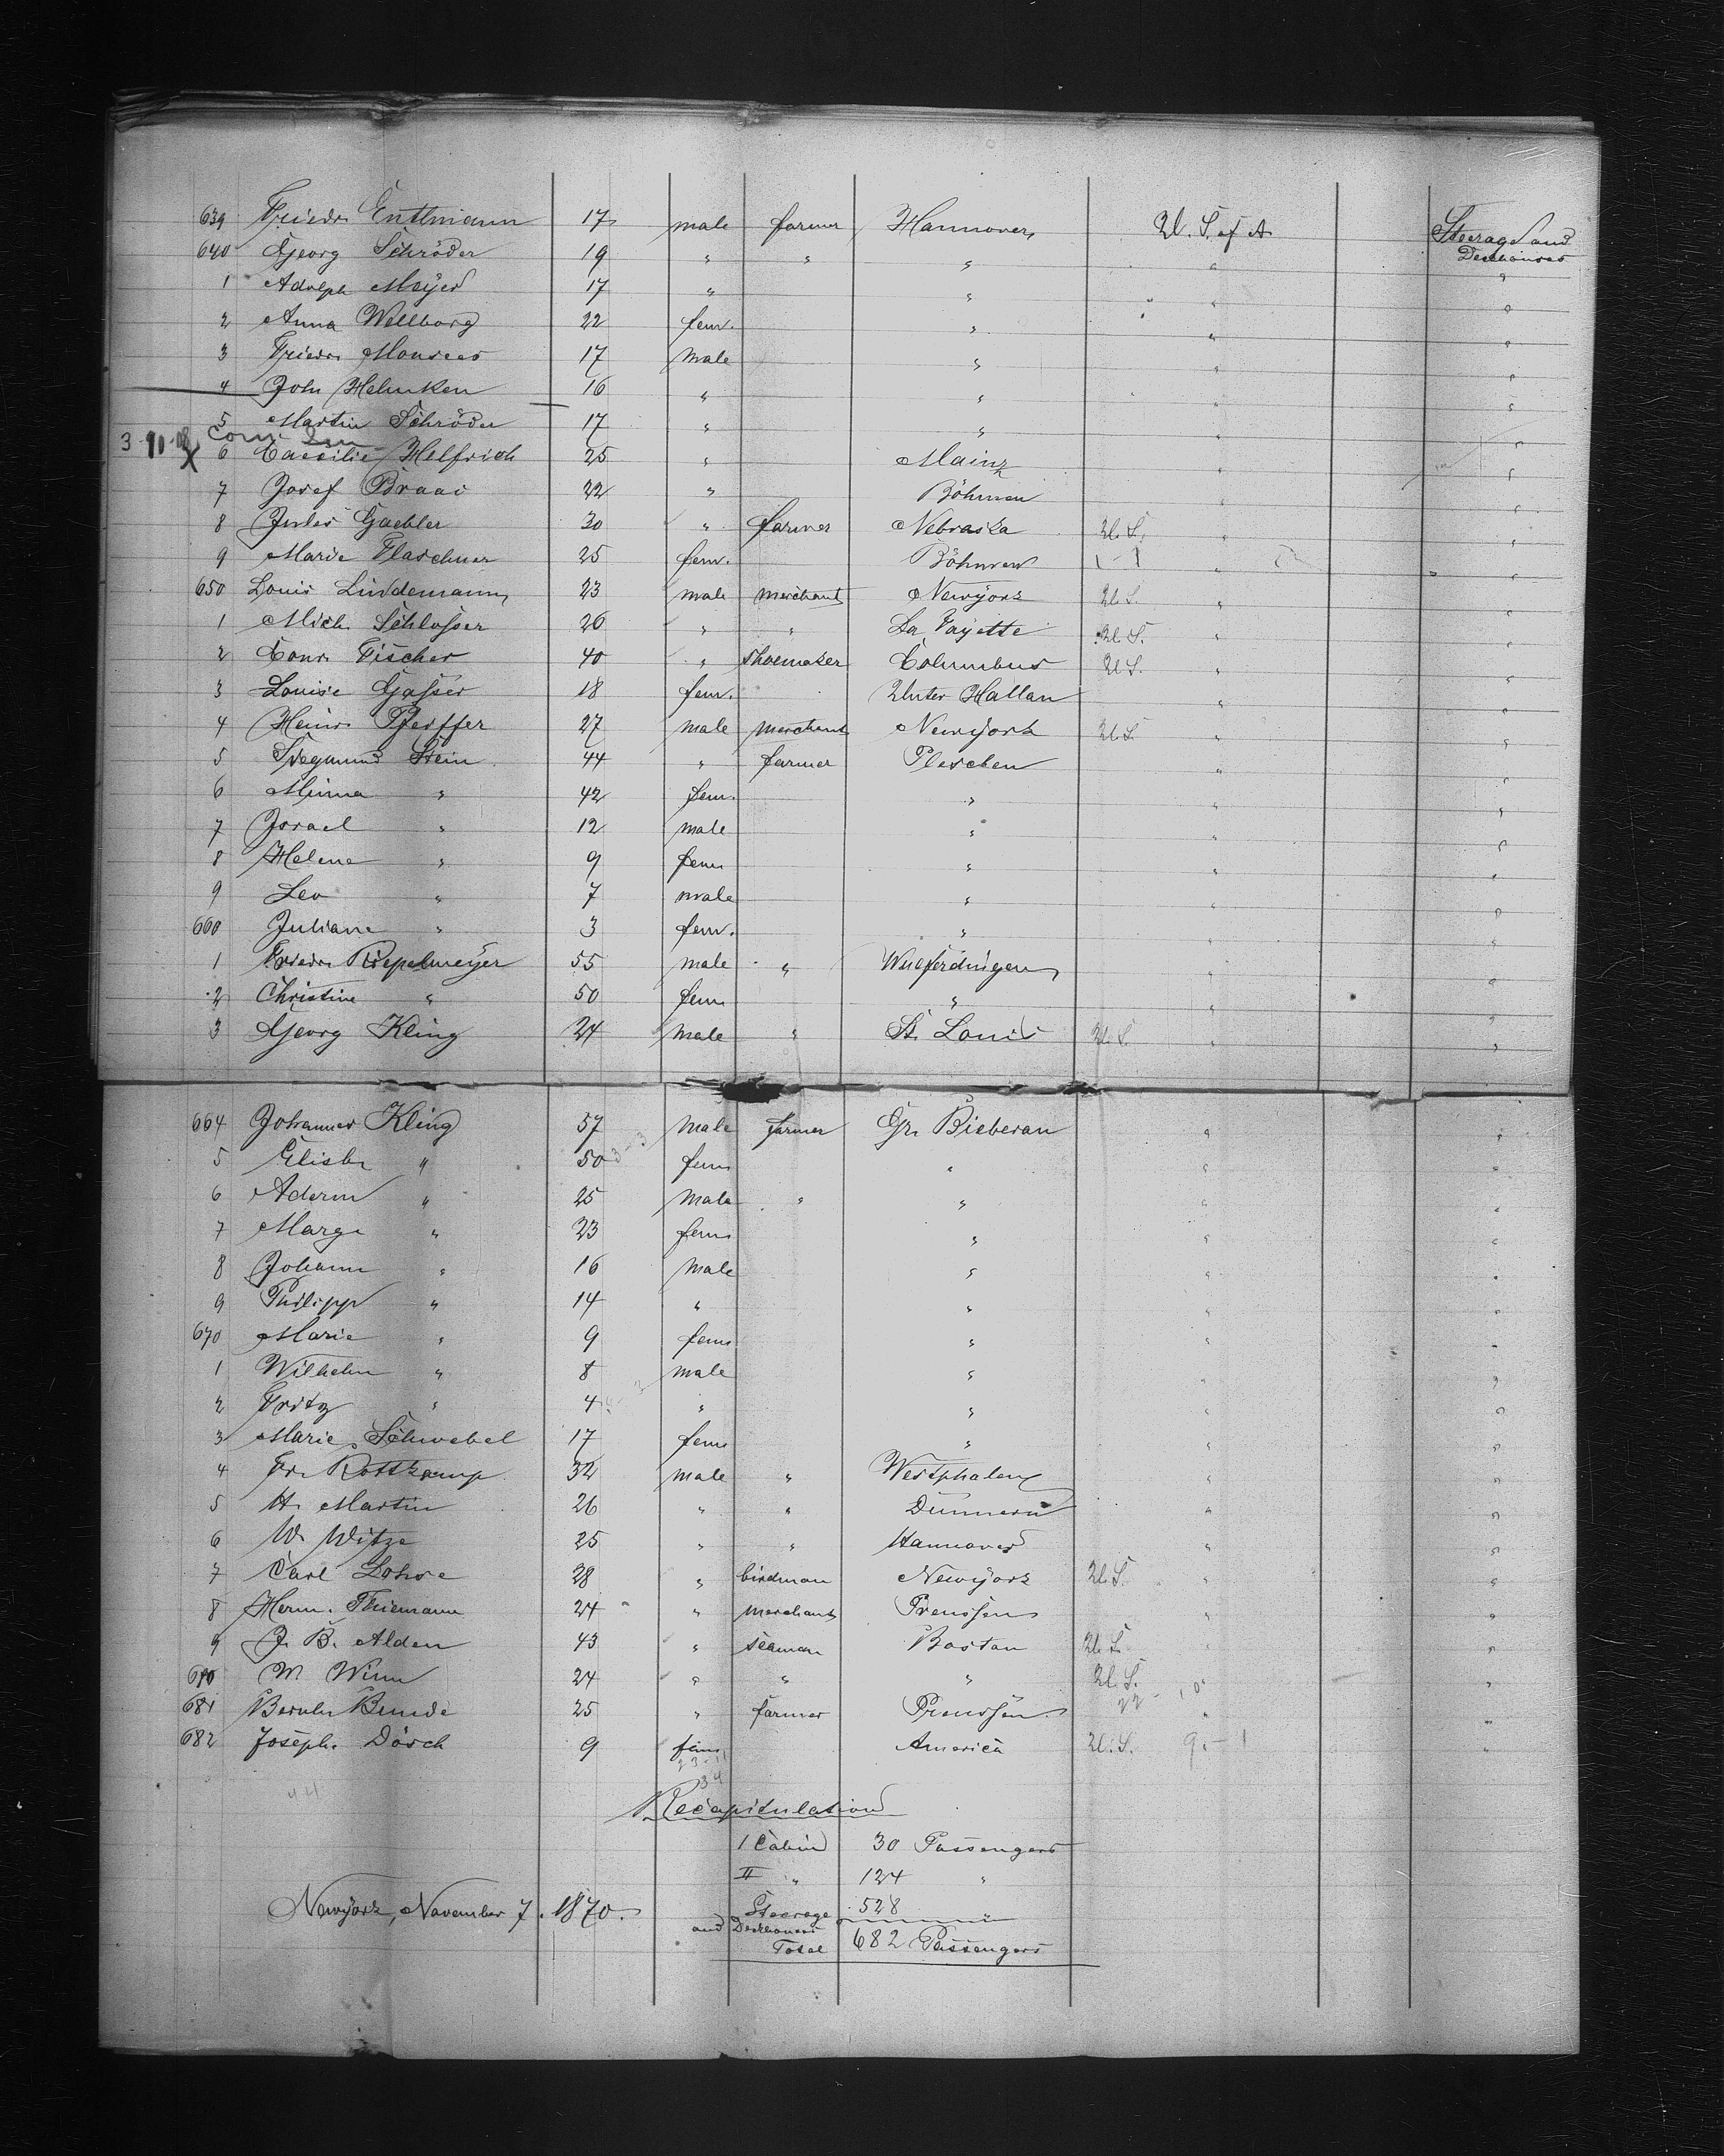 639 Friedr. Entlmann 17 male farmer Hannover U. S. of A. Steerage and Deckhouses
640 Georg Schröder 19 " " " " "
1 Adolph Meyer 17 " " " "
2 Anna Wellborg 22 fem. " " "
3 Friedr. Monsees 17 male " " "
4 John Helmken 16 " " " "
5 Martin Schröder 17 " " " "
3-90-08 X
6 Caecilie Helfrich 25 " Mainz " "
7 Josef Braai 22 " Böhmen " "
8 Jules Gaebler 30 " farmer Nebraska U. S. " "
9 Marie Flaschner 25 fem. Böhmen " "
650 Louis Lindemann 23 male merchant Newyork U. S. " "
1 Mich. Schlosser 26 " " La Fayette U. S. " "
2 Conr. Fischer 40 " shoemaker Columbus U. S. " "
3 Louise Gasser 18 fem. Unter Hallan " "
4 Heinr. Pfeiffer 27 male merchant Newyork U. S. " "
5 Siegmund Stein 44 " farmer Pleschen " "
6 Minna " 42 fem. " " "
7 Israel " 12 male " " "
8 Helene " 9 fem " " "
9 Leo " 7 male " " "
660 Juliane " 3 fem. " " "
1 Friedr. Riepelmeyer 55 male " Wueferdingen " "
2 Christine " 50 fem " " "
3 Georg Kling 24 male " St. Louis U. S. " "
664 Johannes Kling 57 male farmer Gr. Bieberau " "
5 Elisb. " 50 fem " " "
6 Adam " 25 male " " " "
7 Marg. " 23 fem " " "
8 Johann " 16 male " " "
9 Philipp " 14 " " " "
670 Marie " 9 fem " " "
1 Wilhelm " 8 male " " "
2 Fritz " 4 " " " "
3 Marie Schwebel 17 fem " " "
4 Fr. Rottkamp 32 male " Westphalen " "
5 H. Martin 26 " " Dünnern " "
6 W. Witze 25 " " Hannover " "
7 Carl Lohse 28 " birdman Newyork U. S. " "
8 Herm. Thiemann 24 " merchant Preussen " "
9 J. B. Alden 43 " seaman Bostan U. S. " "
680 M Winn 24 " " " U. S. "
681 Bernh. Bunde 25 " farmer Preussen " "
682 Joseph. Dösch 9 fem America U. S. 9-1 "
44
Recapitulation
1 Cabin 30 Passengers
II " 124 "
Newyork, November 7. 1870. Steerage 528 "
and Deckhouses
Total 682 Passengers